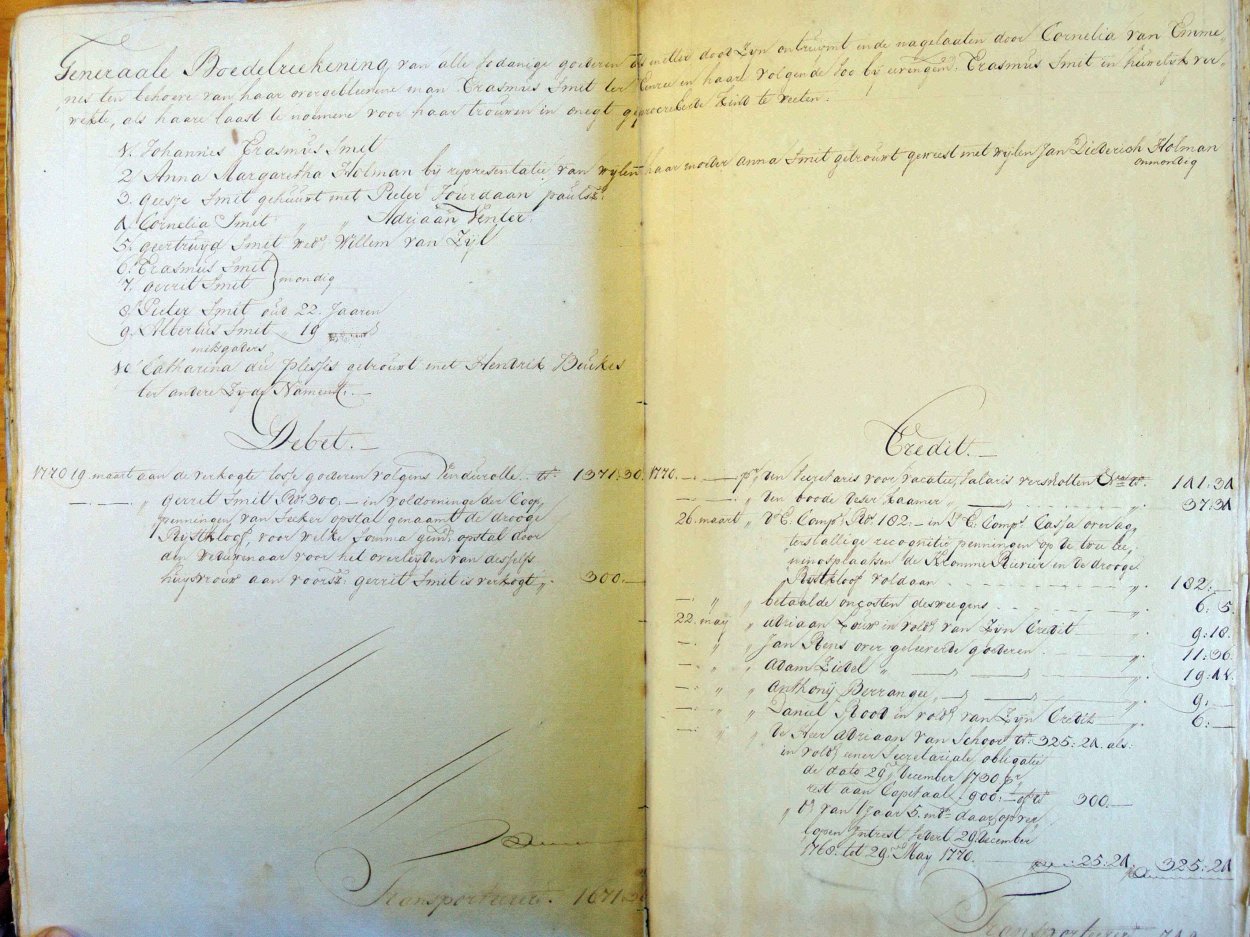 Generaale Boedelreekening van alle sodanige goederen als met ter dood zyn ontruymt ende nagelaaten door Cornelia van Emme„
nes ten behoeve van haar overgebleevene man Erasmus Smit ter Eenre en haar volgende soo bij evengem: Erasmus Smit in huwelyk ver„
wekte, als haare laast te noemene voor haar trouwen in onegt geprocreëerde kind te weeten.
1. Johannes Erasmus Smit
2. Anna Margaretha Holman bij representatie van wylen haar moeder Anna Smit getrouwt geweest met wylen Jan Diederich Holman
onmondig
3. Geesje Smit gehuuwt met Pieter Jourdaan Paulsz:
4. Cornelia Smit „ „ Adriaan Venter.
5. Geertruyd Smit wed: Willem van Zÿl
6. Erasmus Smit
7. Gerrit Smit } mondig
8. Pieter Smit oud 22. Jaaren
9. Albertus Smit „ 19
mitsgaders
10 Catharina du Plessis getrouwt met Hendrik Beukes
ter andere Zyde Namentl:
Debet.
1770 19 maart aan de verkogte losse goederen volgens Vendurolle 1371:30
„ Gerrit Smit Rds 300.— in voldoeninge der Coop
penningen van seeker opstal genaamt de drooge
Rystkloof, voor welke somma gem: opstal door
den weduwnaar voor het overlyden van deszelfs
huysvrouw aan voorsz: Gerrit Smit is verkogt „ 300.—
Transporteere 1671:30
Credit.
1770. pr. den Secretaris voor vacatie, Salaris verschotten 141:34
„ den boode deser kaamer 37:34
26. maart „ d'E. Comp: Rds 182.— in d'E. Comp: Cassa over ag„
terstallige recognitie penningen op de twee lee„
ningsplaatsen de Kromme Rivier en de drooge
Rystkloof voldaan 182:—
„ „ betaalde oncosten desweegens 6:5.
22. may „ Adriaan Louw in vold: van Zyn Credit 9:18.
„ „ Jan Rens over geleeverde goederen 11:36
„ „ Adam Ziedel „ 19:
„ „ Anthonÿ Berrangee „ 9:—
„ „ Daniel Rood in vold: van Zyn Credit 6:—
„ „ de Heer Adriaan van Schoor 325:24. als:
in vold: eener Secretariale obligatie
de dato 29 December 1750 pr
rest aan Capitaal 900:— 300.—
„ do van 1 Jaar 5. mds daar op ver„
lopen Intrest sedert 29 December
1768: tot 29. May 1770. 25:24. 325:24
Transporteere